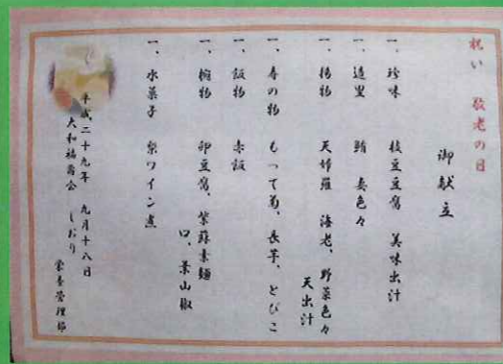 祝い 敬老の日
御献立
一、珍味 枝豆豆腐 美味出汁
一、造里 鮪 妻色々
一、揚物 天婦羅 海老、野菜色々
天出汁
一、香の物 もって菊、長芋、とびこ
一、飯物 赤飯
一、椀物 卵豆腐、紫蘇素麺
口、葉山椒
一、水菓子 梨ワイン煮
平成二十九年 九月十八日
大和福寿会 しおり
栄養管理部